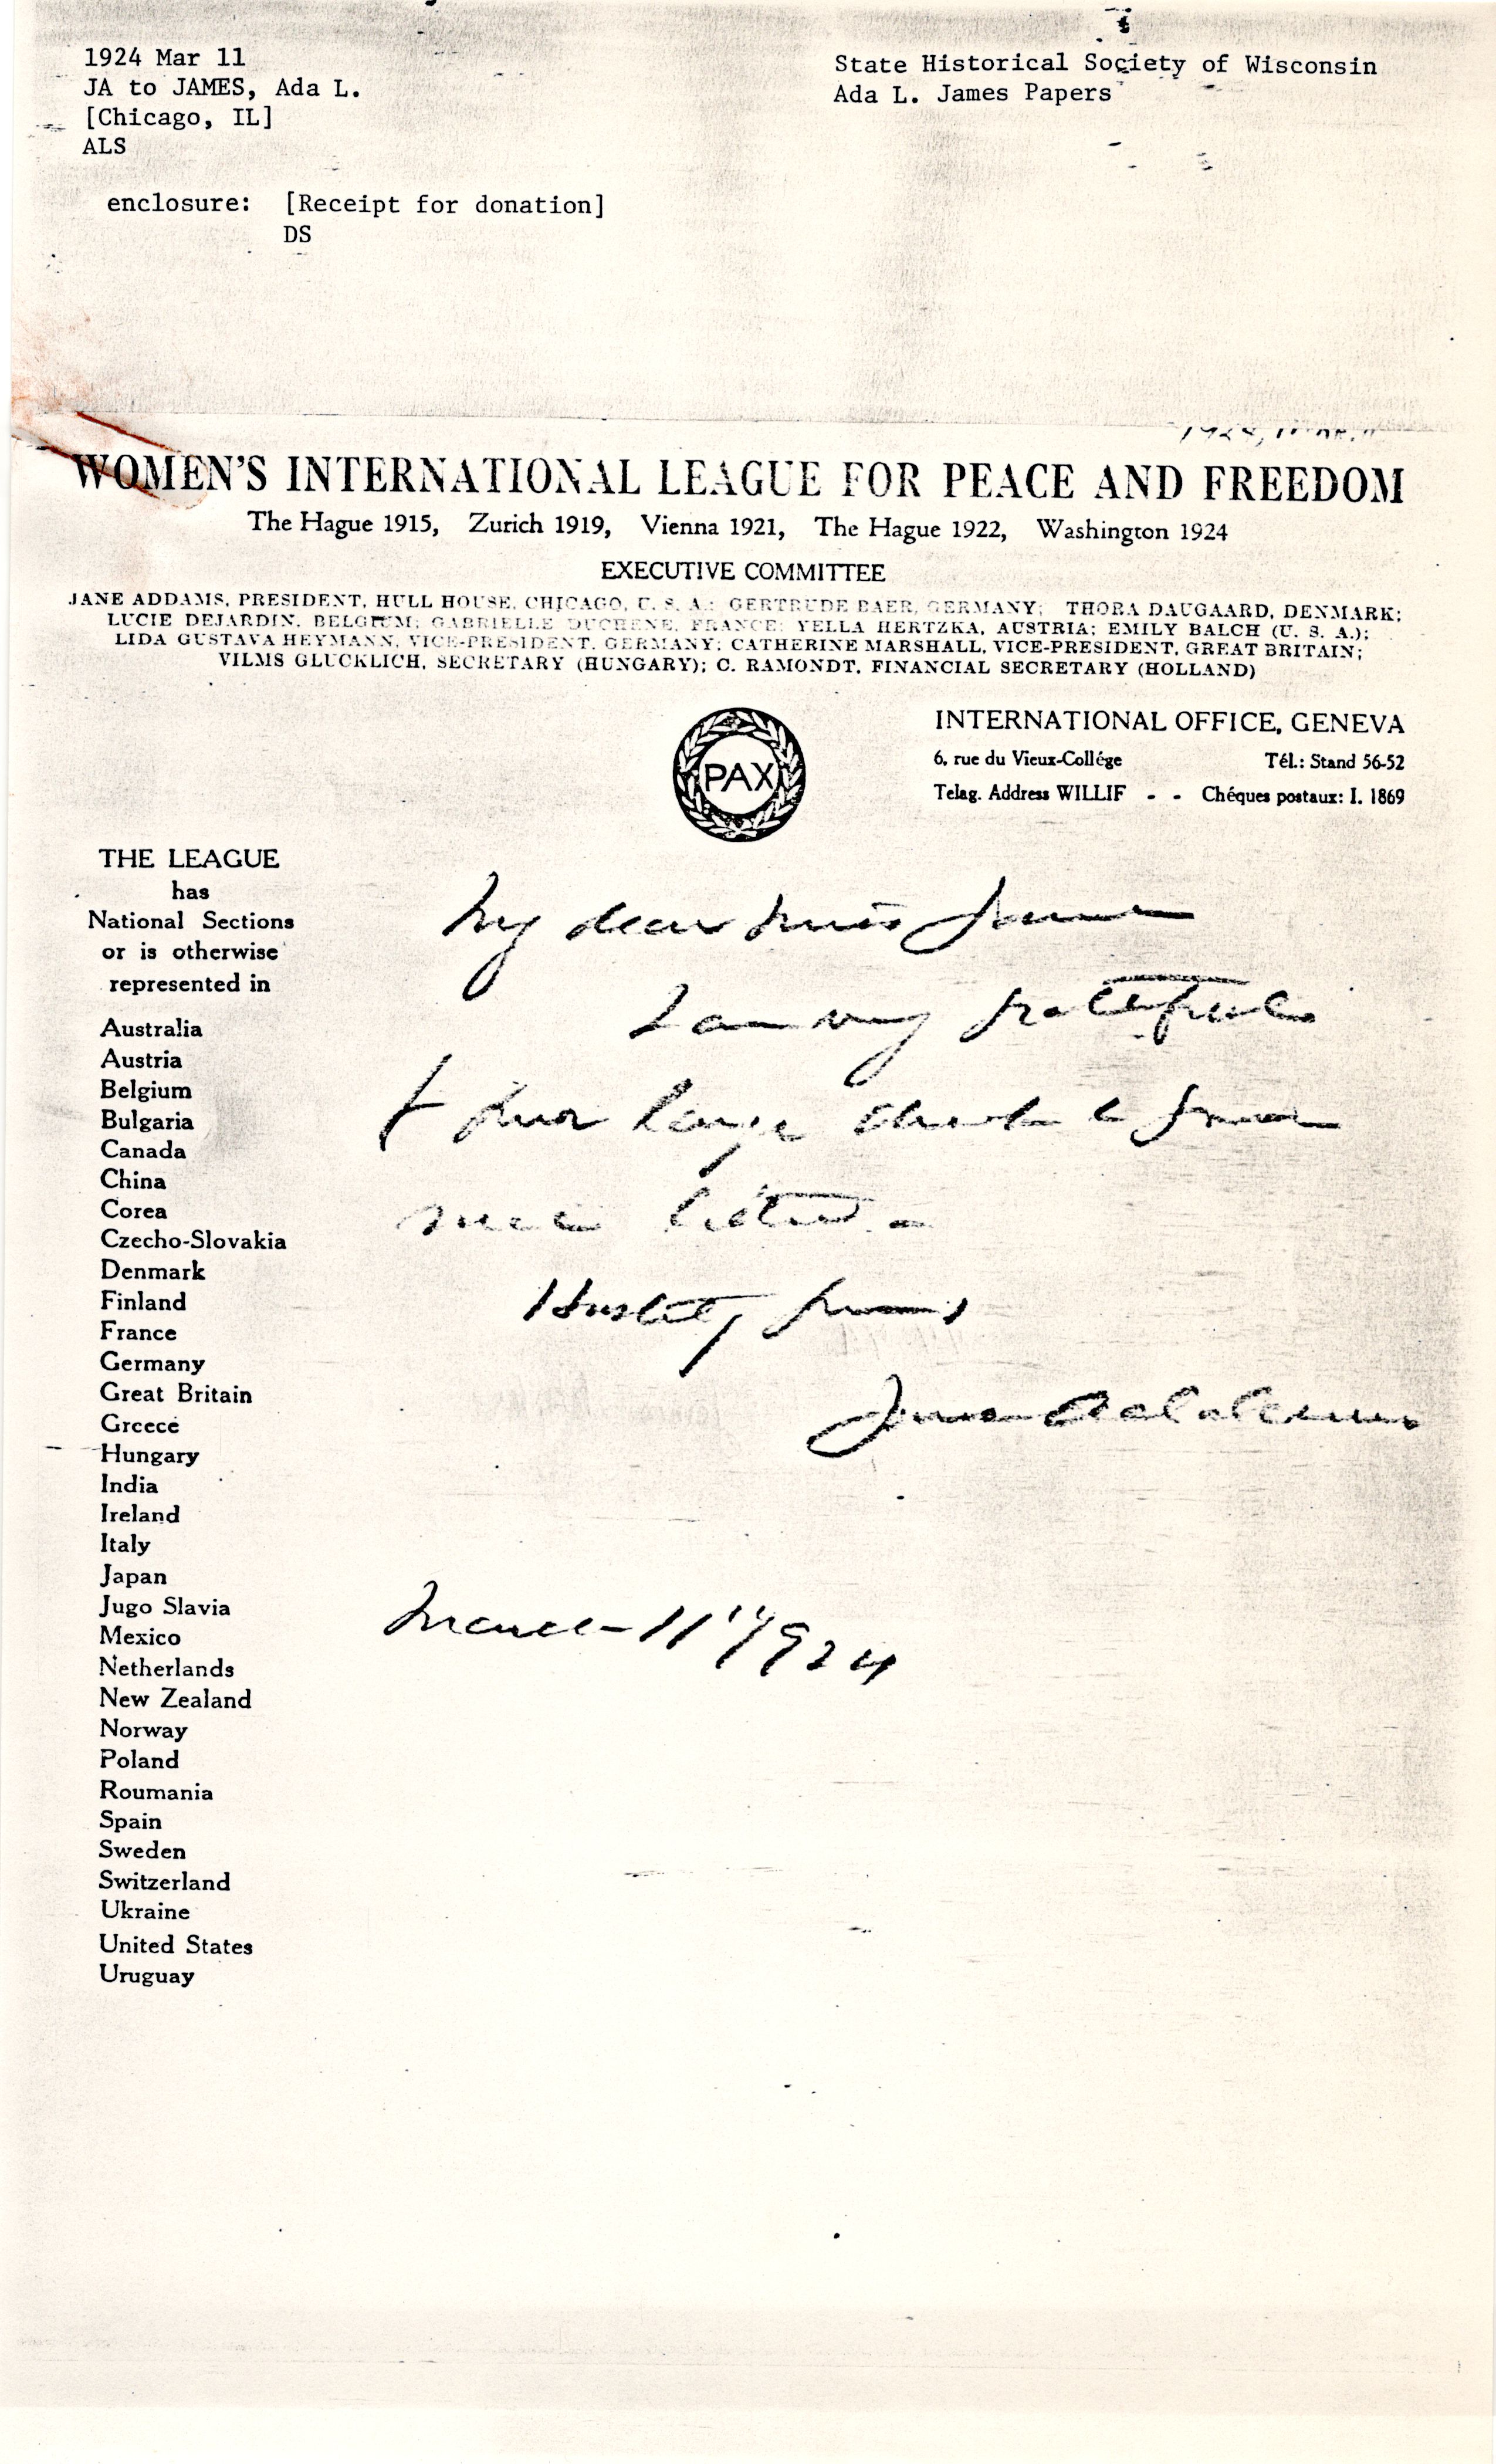 1924 Mar 11
JA to JAMES, Ada L.
[Chicago, IL]
ALS
enclosure: [Receipt for donation]
DS
State Historical Society of Wisconsin
Ada L. James Papers
1924, Mar. 11
WOMEN'S INTERNATIONAL LEAGUE FOR PEACE AND FREEDOM
The Hague 1915, Zurich 1919, Vienna 1921, The Hague 1922, Washington 1924
EXECUTIVE COMMITTEE
JANE ADDAMS, PRESIDENT, HULL HOUSE, CHICAGO, U. S. A.; GERTRUDE BAER, GERMANY; THORA DAUGAARD, DENMARK;
LUCIE DEJARDIN, BELGIUM; GABRIELLE DUCHENE, FRANCE; YELLA HERTZKA, AUSTRIA; EMILY BALCH (U. S. A.);
LIDA GUSTAVA HEYMANN, VICE-PRESIDENT, GERMANY; CATHERINE MARSHALL, VICE-PRESIDENT, GREAT BRITAIN;
VILMS GLUCKLICH, SECRETARY (HUNGARY); C. RAMONDT, FINANCIAL SECRETARY (HOLLAND)
PAX
INTERNATIONAL OFFICE, GENEVA
6, rue du Vieux-Collége Tél.: Stand 56-52
Telag. Address WILLIF - - Chéques postaux: I. 1869
THE LEAGUE
has
National Sections
or is otherwise
represented in
Australia
Austria
Belgium
Bulgaria
Canada
China
Corea
Czecho-Slovakia
Denmark
Finland
France
Germany
Great Britain
Greece
Hungary
India
Ireland
Italy
Japan
Jugo Slavia
Mexico
Netherlands
New Zealand
Norway
Poland
Roumania
Spain
Sweden
Switzerland
Ukraine
United States
Uruguay
My dear Miss James
I am very grateful
for your large check & your
nice letter -
Hastily yours
Jane Addams
March 11" 1924